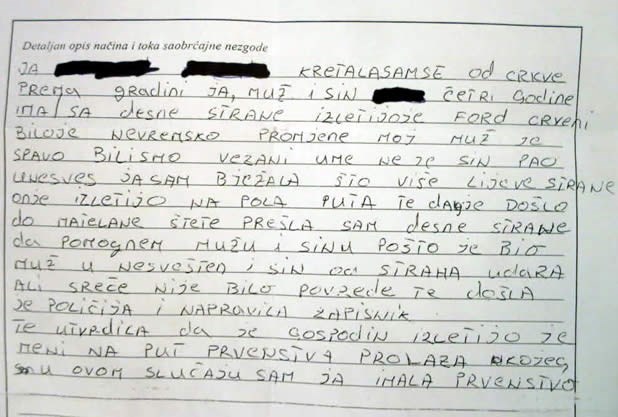 Detaljan opis načina i toka saobrćajne nezgode
JA KRETALASAMSE od CRKVE
PREMA gradini JA, MUŽ I SIN ČETRI GODINE
IMA/SA desne STRANE IZLETIJOJE FORD CRVENI
BILOJE NEVREMSKO PROMJENE MOJ MUŽ JE
SPAVO BILISMO VEZANI UME NE JE SIN PAO
UNESVES JASAM BJEŽALA ŠTO VIŠE LIJEVE STRANE
ONJE IZLETIJO NA POLA PUTA TE dAJE DOŠLO
do MATELANE ŠTETE PREŠLA SAM desne STRANE
da POMOGNEM MUŽU I SINU POŠTO JE BIO
MUŽ U NESVESTEN I SIN Od STRAHA UDARA
ALI SREČE NIJE BILO POVREDE TE DOŠLA
JE POLIČIJA I NAPROVILA ZAPISNIK
TE UTVRDILA da JE GOSPODIN IZLETIJO JE
MENI NA PUT PRVENSTVA PROLAZA KOJEG
U OVOM SLUČAJU SAM JA IMALA PRVENSTVO